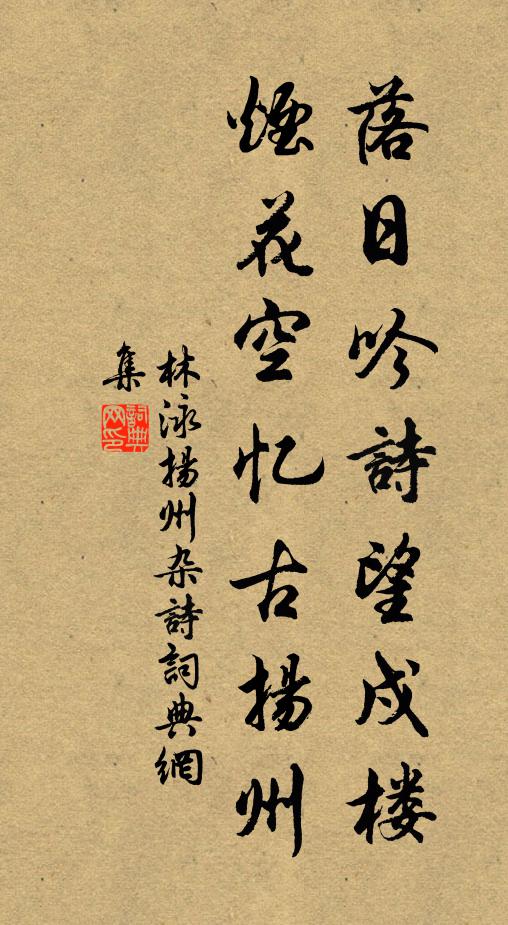 落日吟詩望戍楼
烟花空忆古揚州
林泳揚州杂詩詞典網
集
詞典网印